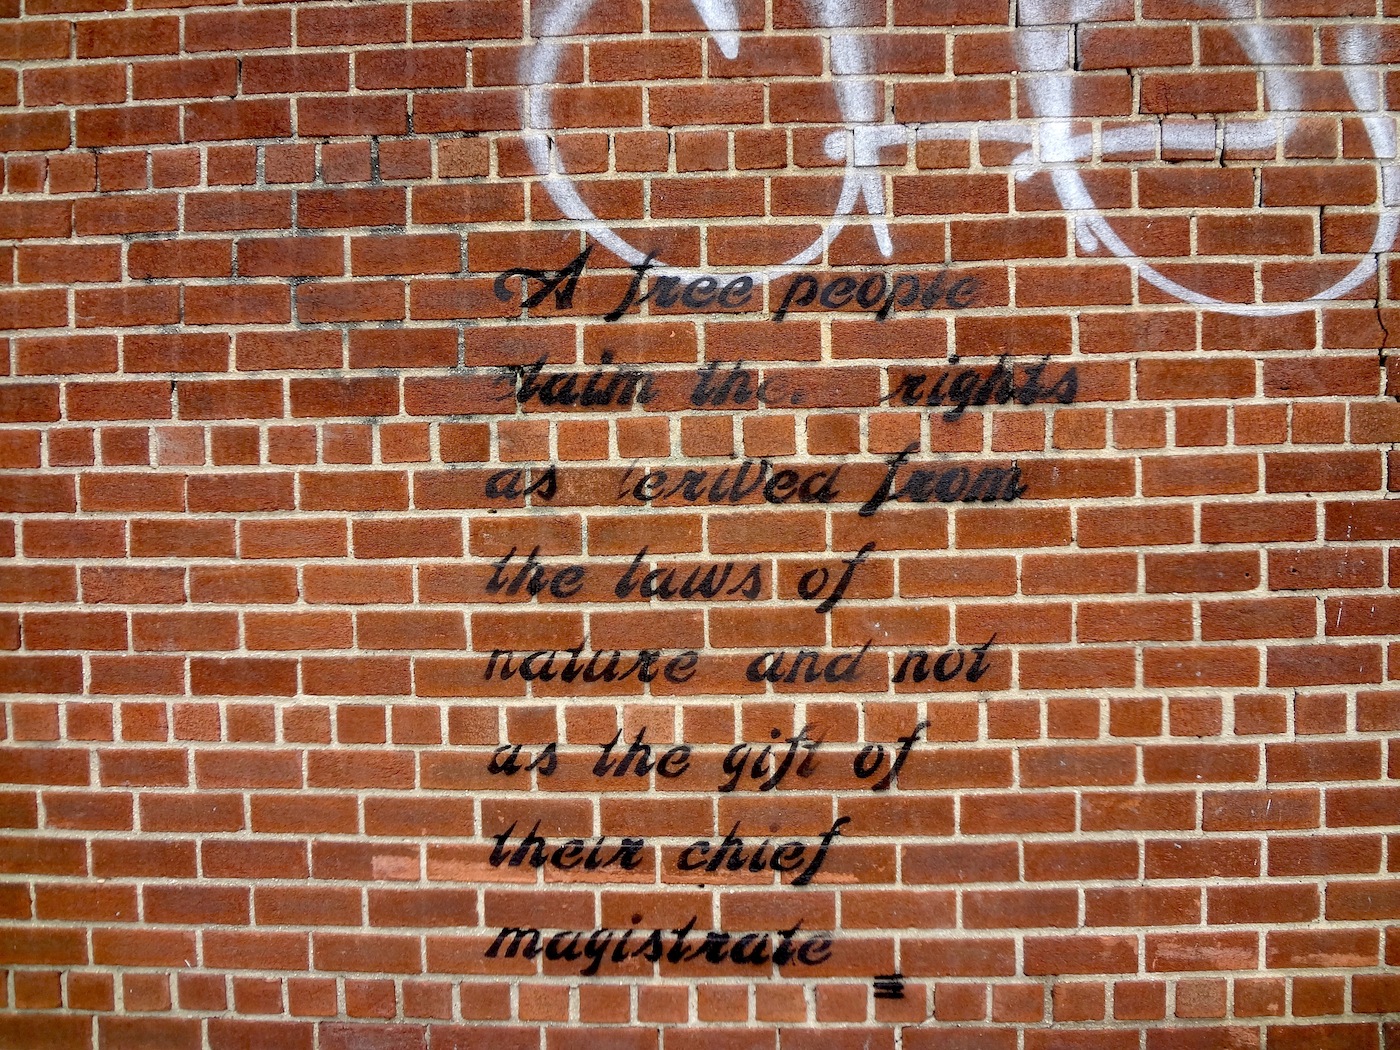 A free people
claim the rights
as derived from
the laws of
nature and not
as the gift of
their chief
magistrate